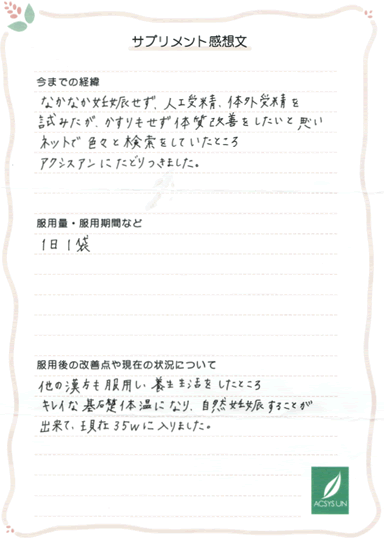 サプリメント感想文
今までの経緯
なかなか妊娠せず、人工受精、体外受精を
試みたが、かすりもせず体質改善をしたいと思い
ネットで色々と検索をしていたところ
アクシスアンにたどりつきました。
服用量・服用期間など
1日1袋
服用後の改善点や現在の状況について
他の漢方も服用し、養生生活をしたところ
キレイな基礎体温になり、自然妊娠することが
出来て、現在35wに入りました。
ACSYS UN